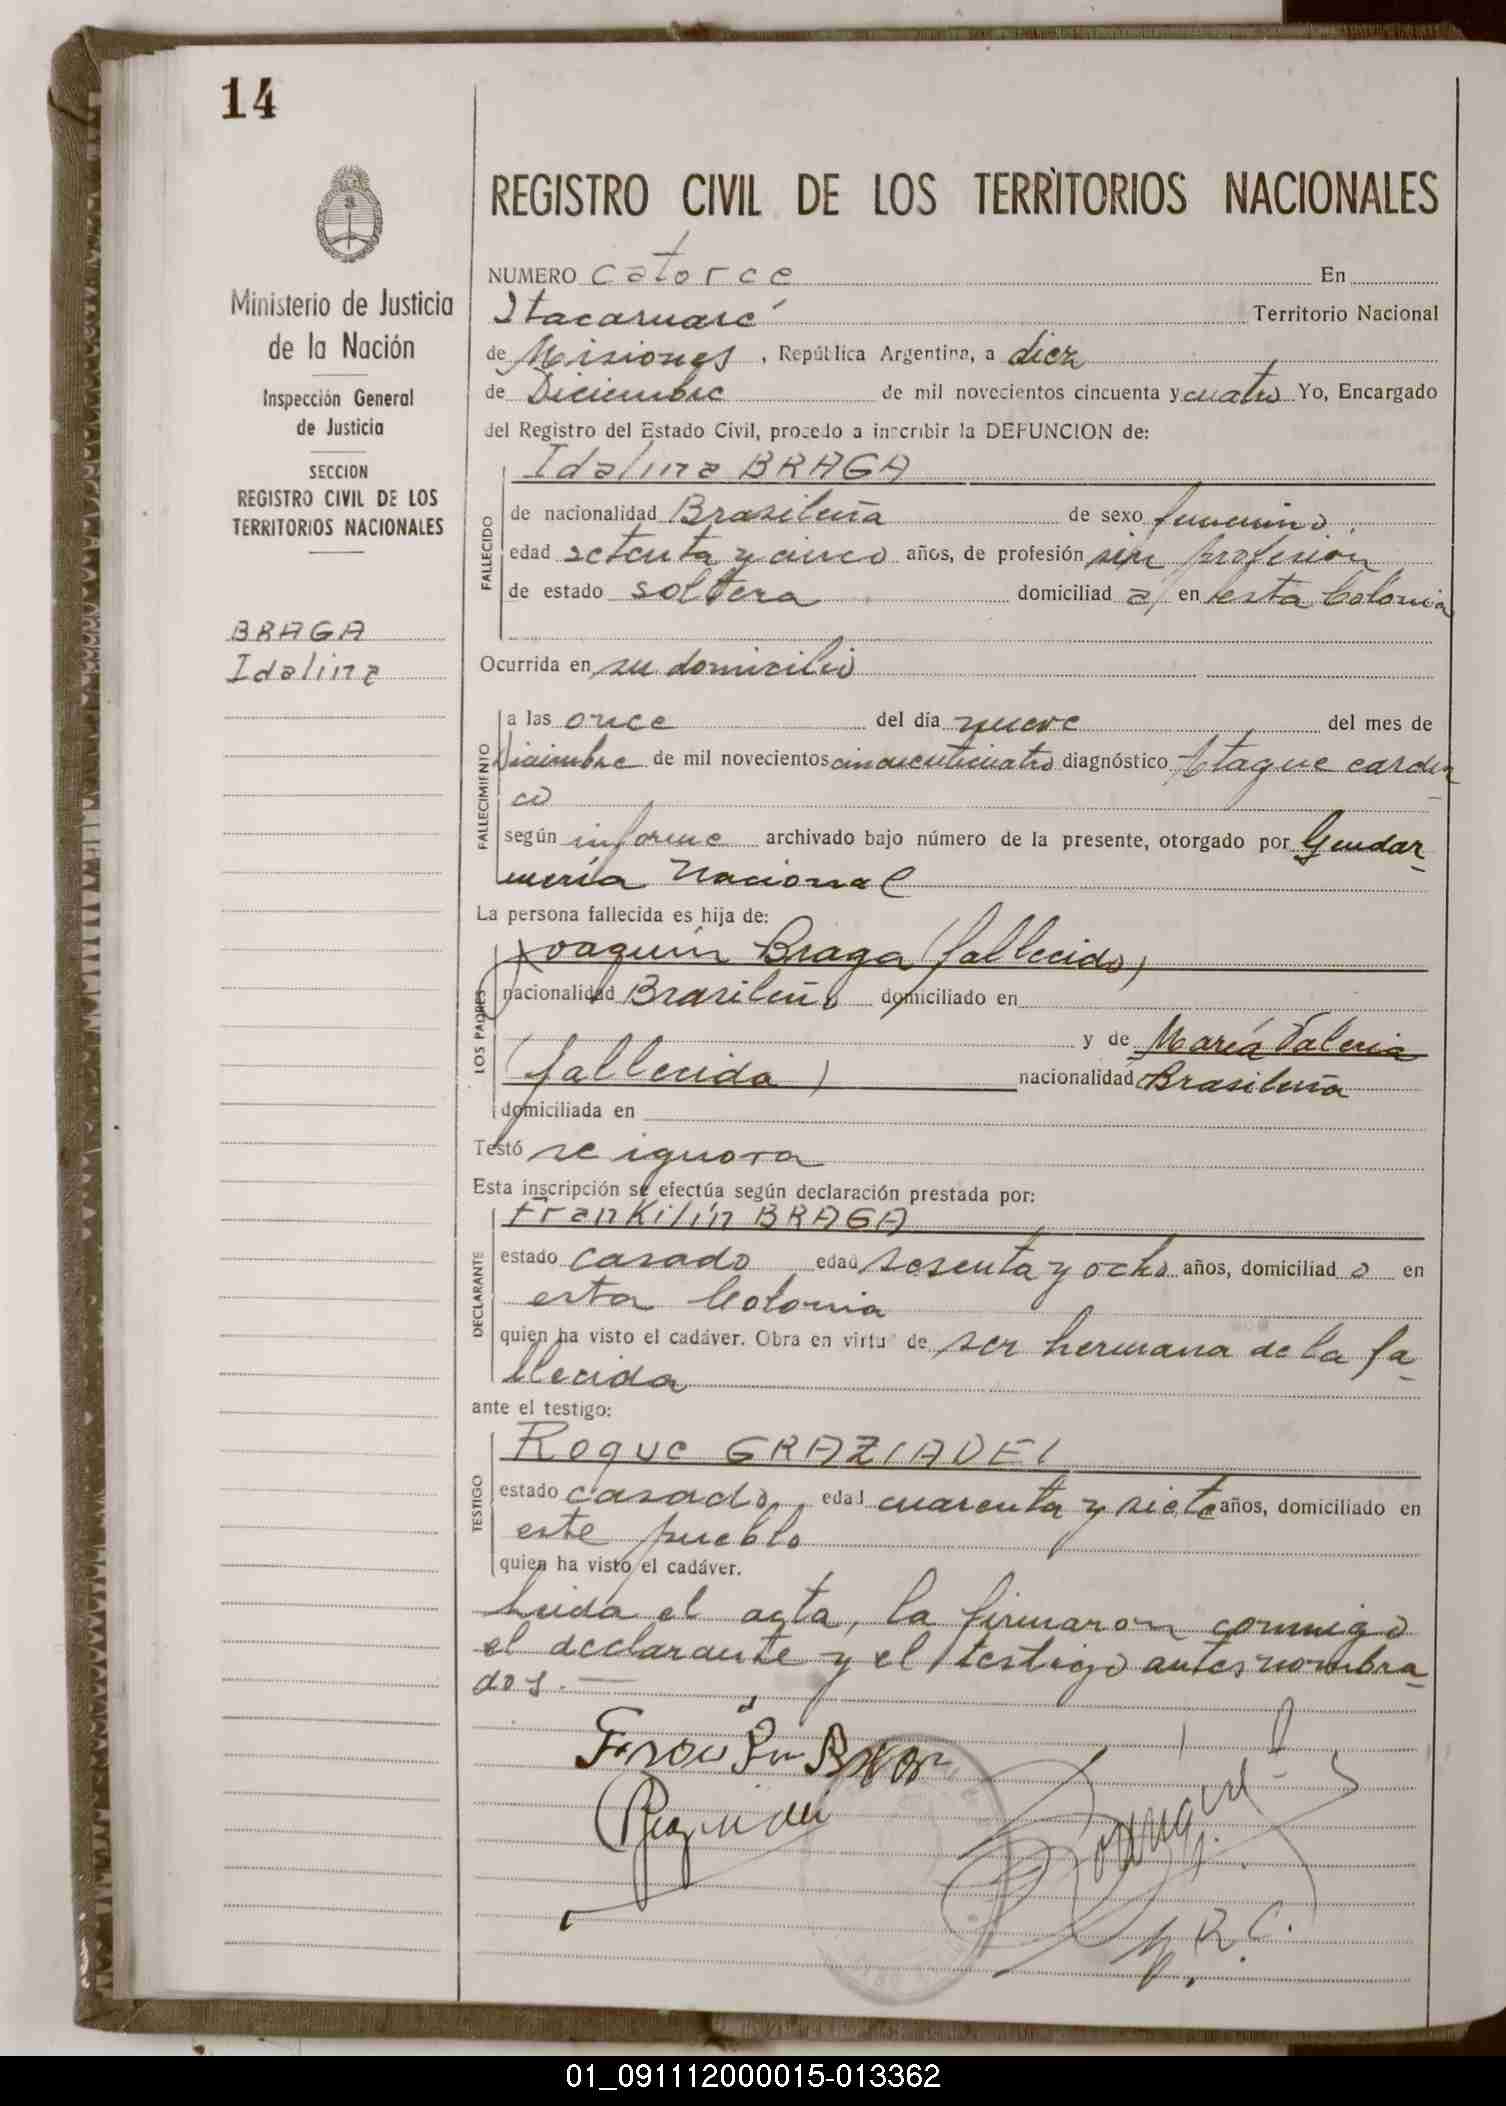 14
REGISTRO CIVIL DE LOS TERRITORIOS NACIONALES
Ministerio de Justicia
de la Nación
Inspección General
de Justicia
SECCION
REGISTRO CIVIL DE LOS
TERRITORIOS NACIONALES
BRAGA
Idalina
NUMERO catorce En
Itacaruaré Territorio Nacional
de Misiones, República Argentina, a diez
de Diciembre de mil novecientos cincuenta y cuatro Yo, Encargado
del Registro del Estado Civil, procedo a inscribir la DEFUNCION de:
FALLECIDO
Idalina BRAGA
de nacionalidad Brasileña de sexo femenino
edad setenta y cinco años, de profesión sin profesión
de estado soltera domiciliad a en esta Colonia
Ocurrida en su domicilio
FALLECIMIENTO
a las once del día nueve del mes de
Diciembre de mil novecientos cincuenticuatro diagnóstico Ataque cardía
co
según informe archivado bajo número de la presente, otorgado por Gendar-
mería Nacional
La persona fallecida es hija de:
LOS PADRES
Joaquín Braga (fallecido)
nacionalidad Brasileño domiciliado en
y de María Valeria
(fallecida) nacionalidad Brasileña
domiciliada en
Testó se ignora
Esta inscripción se efectúa según declaración prestada por:
DECLARANTE
Frankilín BRAGA
estado casado edad sesenta y ocho años, domiciliad o en
esta Colonia
quien ha visto el cadáver. Obra en virtud de ser hermana de la fa-
llecida
ante el testigo:
TESTIGO
Roque GRAZIADEI
estado casado edad cuarenta y siete años, domiciliado en
este pueblo
quien ha visto el cadáver.
Leida el acta, la firmaron conmigo
el declarante y el testigo antes nombra-
dos.—
01_091112000015-013362